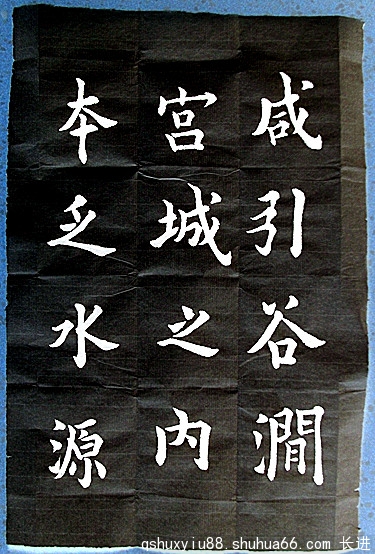 咸引谷澗
宫城之内
本乏水源
qshuxyiu88.shuhua66.com 长进